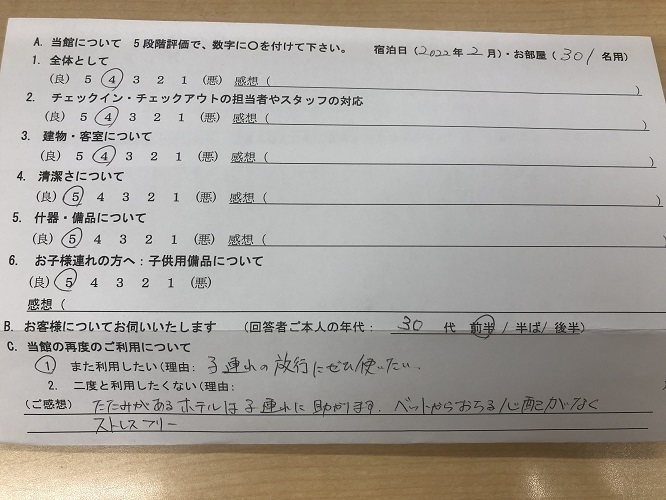 A. 当館について 5段階評価で、数字に〇を付けて下さい。 宿泊日(2022年2月)・お部屋(301名用)
1. 全体として
(良) 5 4 3 2 1 (悪) 感想( )
2. チェックイン・チェックアウトの担当者やスタッフの対応
(良) 5 4 3 2 1 (悪) 感想( )
3. 建物・客室について
(良) 5 4 3 2 1 (悪) 感想( )
4. 清潔さについて
(良) 5 4 3 2 1 (悪) 感想( )
5. 什器・備品について
(良) 5 4 3 2 1 (悪) 感想(
6. お子様連れの方へ:子供用備品について
(良) 5 4 3 2 1 (悪)
感想(
B. お客様についてお伺いいたします (回答者ご本人の年代: 30 代 前半 / 半ば / 後半)
C. 当館の再度のご利用について
1 また利用したい(理由: 子連れの放行にぜひ使いたい.
2. 二度と利用したくない(理由: )
(ご感想) たたみがあるホテルは子連れに助かります. ベットからおちる心配がなく
ストレスフリー